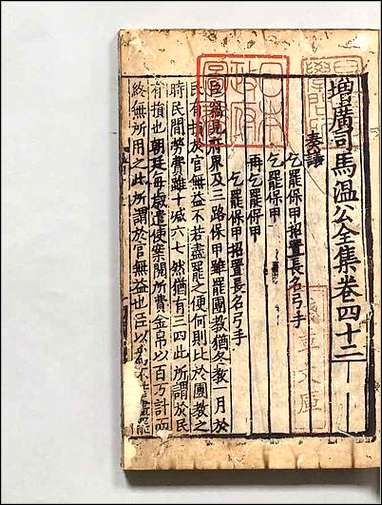 增廣司馬温公全集卷四十二
奏議
乞罷保甲招置長名弓手
乞罷保甲
再乞罷保甲
乞罷保甲招置長名弓手
臣竊見府界及三路保甲雖罷團教猶冬教一月於
民有損於官無益不若盡罷之便何則比於團教之
時民間勞費雖十減六七然猶有三四此所謂於民
有損也朝廷每歲遣使案閱所費金帛以百万計而
終無所用之此所謂於官無益也臣以
日本政府圖書
文庫